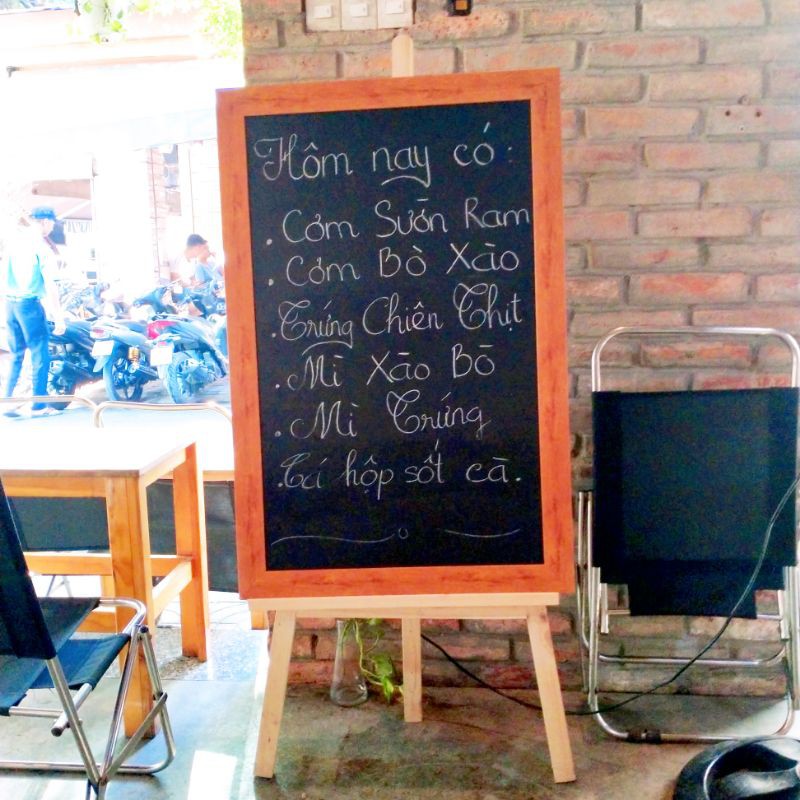 Hôm nay có:
. Cơm Sườn Ram
. Cơm Bò Xào
. Trứng Chiên Thịt
. Mì Xào Bò
. Mì Trứng
. Cá hộp sốt cà.